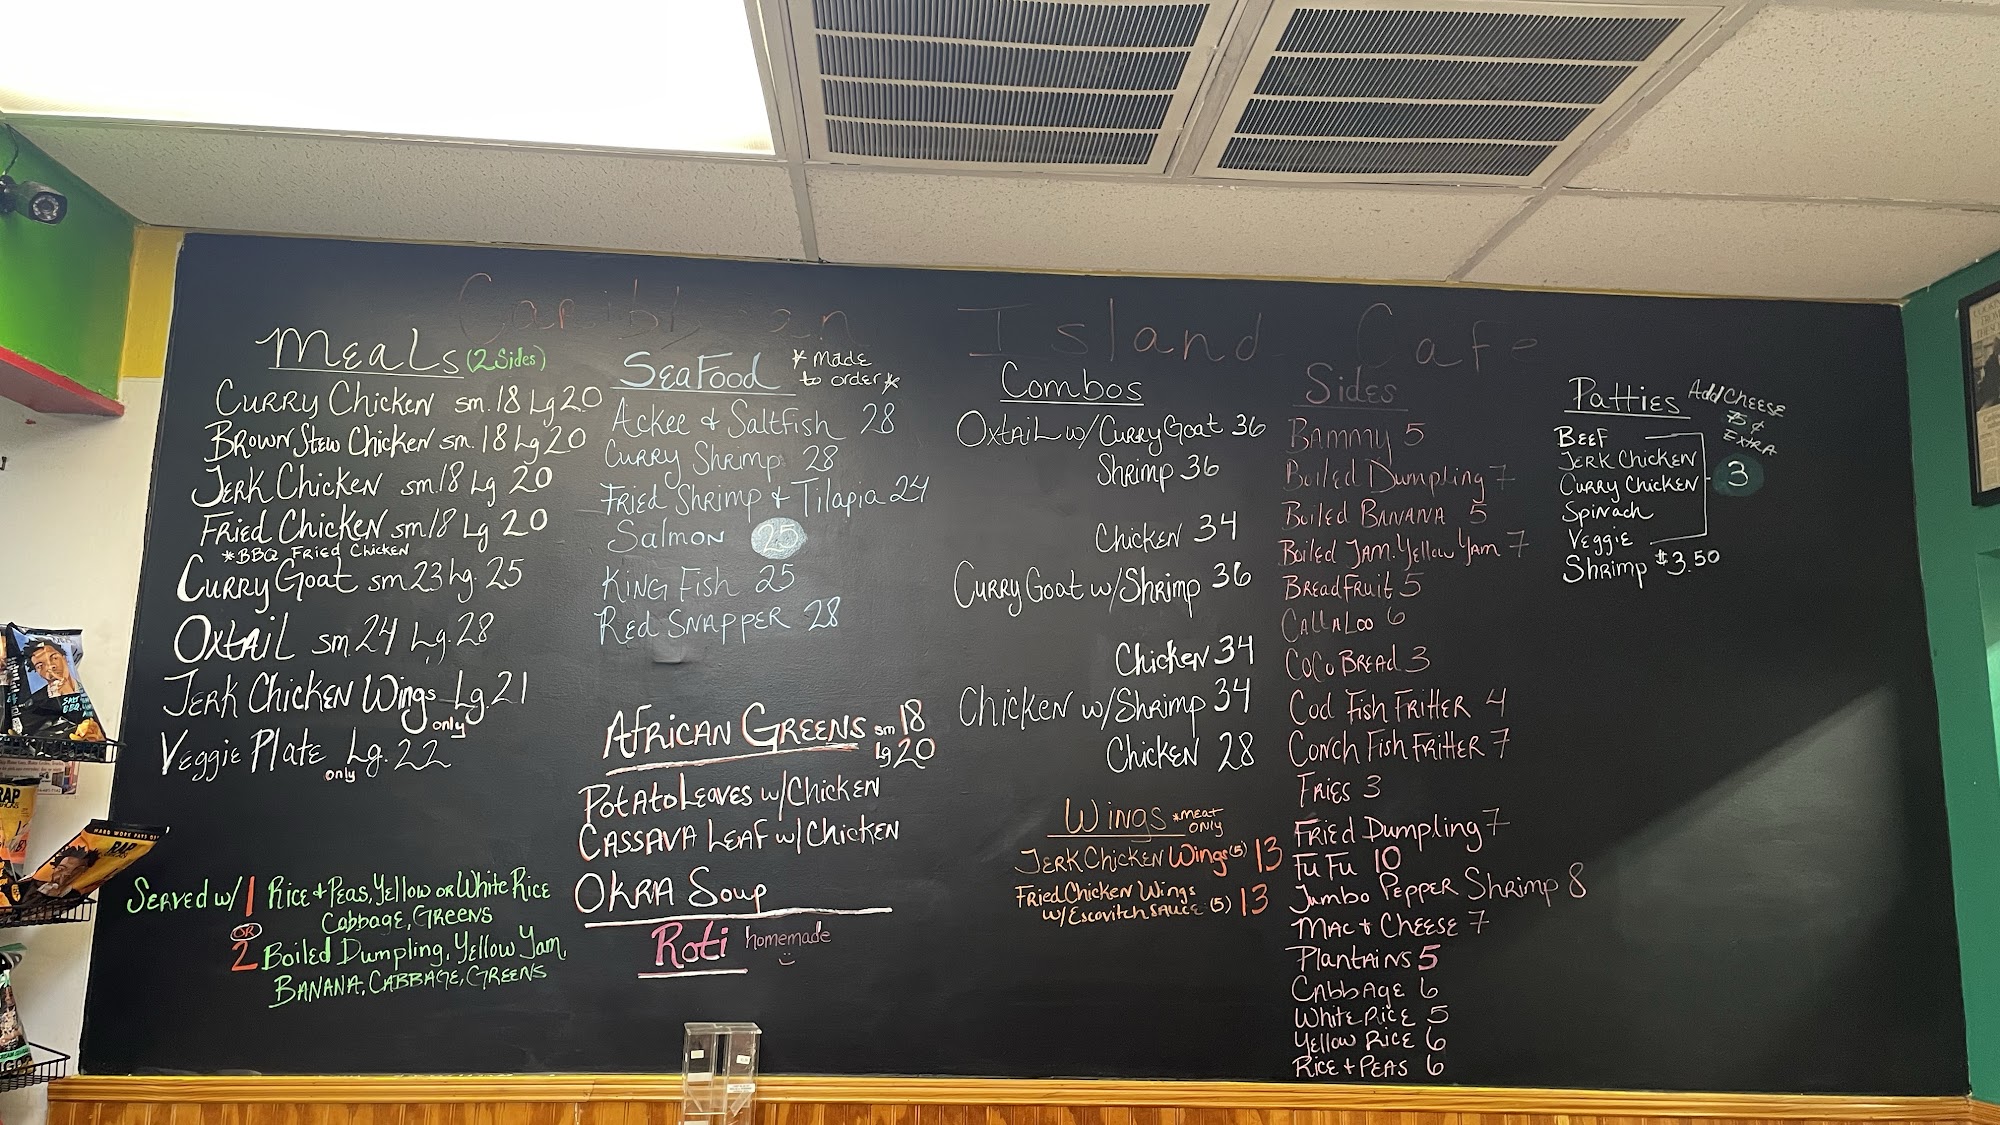 Caribbean Island Cafe
Meals (2 Sides)
Curry Chicken sm. 18 Lg 20
Brown Stew Chicken sm. 18 Lg 20
Jerk Chicken sm. 18 Lg 20
Fried Chicken sm 18 Lg 20
*BBQ Fried Chicken
Curry Goat sm 23 Lg. 25
Oxtail sm. 24 Lg. 28
Jerk Chicken Wings Lg. 21
only
Veggie Plate Lg. 22
only
Served w/ 1 Rice + Peas, Yellow or White Rice
Cabbage, Greens
OR
2 Boiled Dumpling, Yellow Yam,
Banana, Cabbage, Greens
SeaFood *made to order*
Ackee & Saltfish 28
Curry Shrimp 28
Fried Shrimp + Tilapia 24
Salmon 25
King Fish 25
Red Snapper 28
African Greens sm 18
Lg 20
Potato Leaves w/Chicken
Cassava Leaf w/Chicken
Okra Soup
Roti homemade
Combos
Oxtail w/Curry Goat 36
Shrimp 36
Chicken 34
Curry Goat w/Shrimp 36
Chicken 34
Chicken w/Shrimp 34
Chicken 28
Wings *meat only
Jerk Chicken Wings (5) 13
Fried Chicken Wings
w/Escovitch Sauce (5) 13
Sides
Bammy 5
Boiled Dumpling 7
Boiled Banana 5
Boiled Jam. Yellow Yam 7
BreadFruit 5
Callaloo 6
CoCo Bread 3
Cod Fish Fritter 4
Conch Fish Fritter 7
Fries 3
Fried Dumpling 7
Fu Fu 10
Jumbo Pepper Shrimp 8
Mac + Cheese 7
Plantains 5
Cabbage 6
White Rice 5
Yellow Rice 6
Rice + Peas 6
Patties Add Cheese
75 ¢
Extra
Beef
Jerk Chicken
Curry Chicken 3
Spinach
Veggie
Shrimp $3.50
RAP
HARD WORK PAYS
RAP